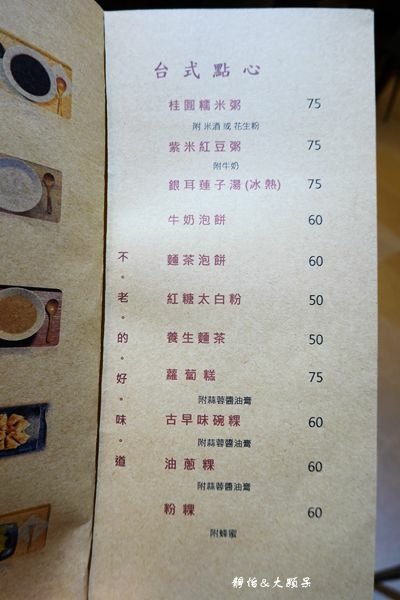 台式點心
桂圓糯米粥 75
附 米酒 或 花生粉
紫米紅豆粥 75
附牛奶
銀耳蓮子湯(冰熱) 75
牛奶泡餅 60
麵茶泡餅 60
紅糖太白粉 50
養生麵茶 50
蘿蔔糕 75
附蒜蓉醬油膏
古早味碗粿 60
附蒜蓉醬油膏
油蔥粿 60
附蒜蓉醬油膏
粉粿 60
附蜂蜜
不。老。的。好。味。道
靜怡&大顆呆